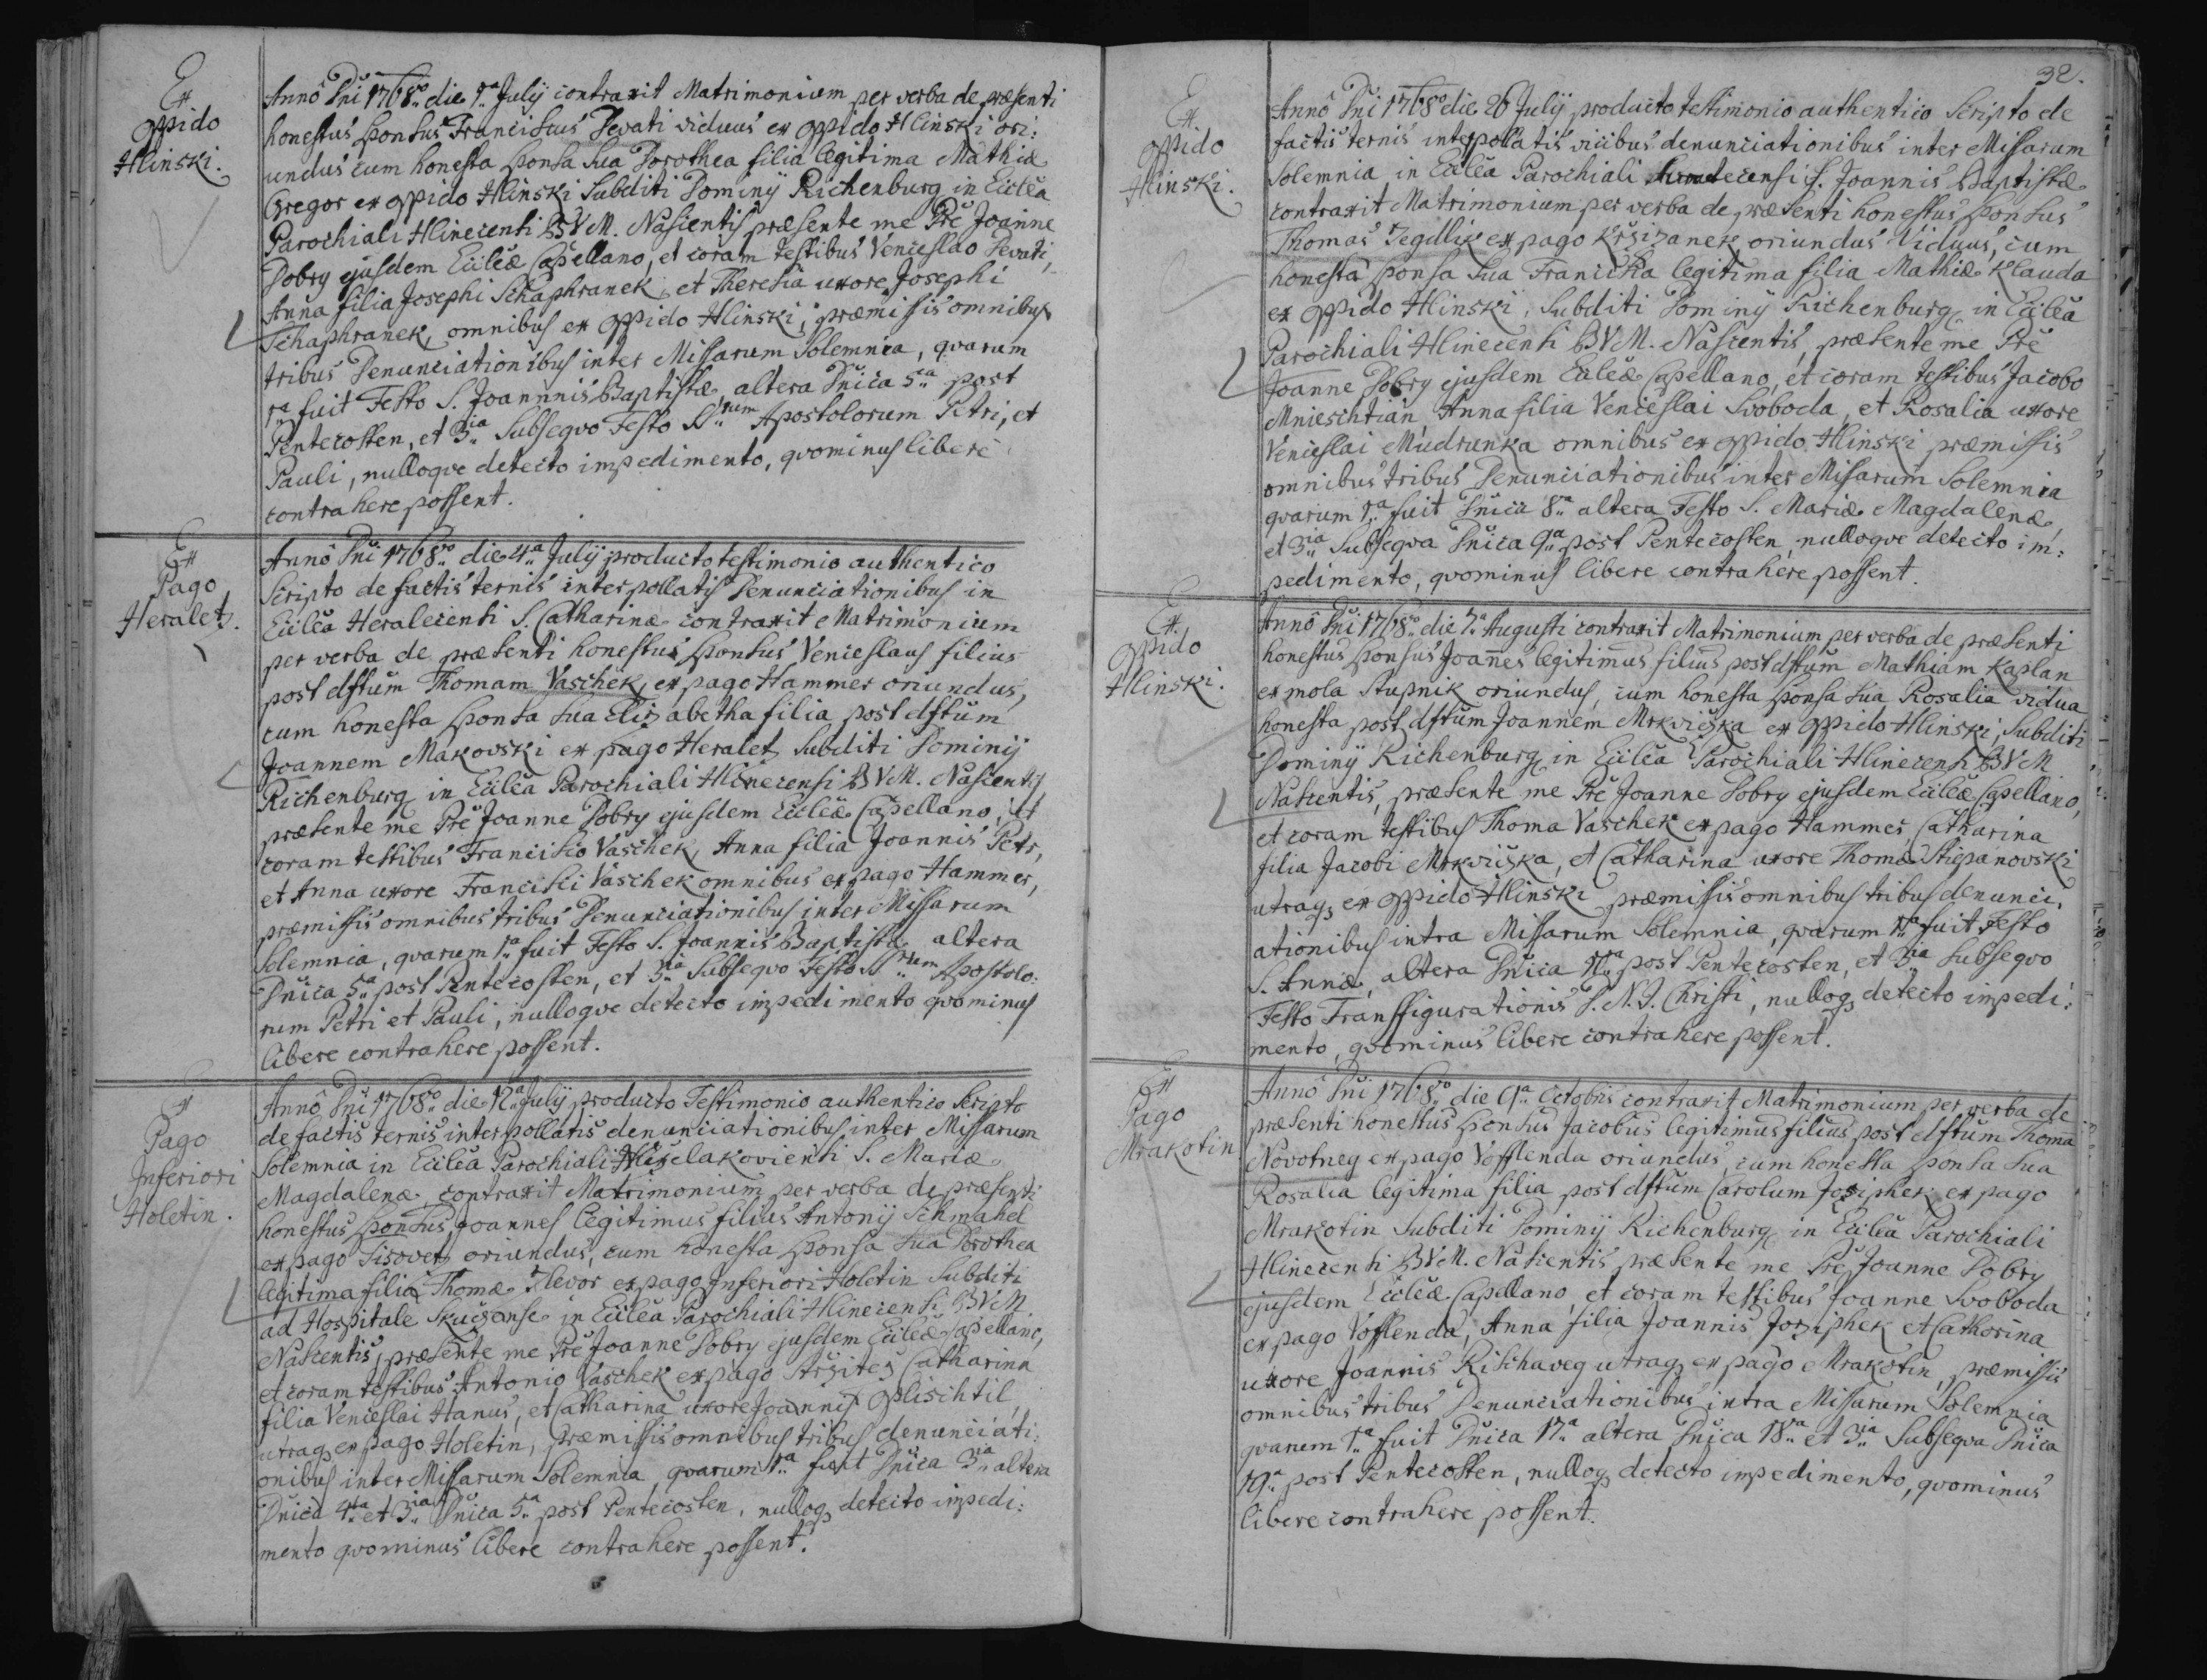 Ex
oppido
Hlinski.
Anno Dni 1768vo die 1ma July contraxit Matrimonium per verba de præsenti
honestus sponsus Franciscus Devati viduus ex oppido Hlinski ori:
undus cum honesta sponsa sua Dorothea filia legitima Mathiæ
Gregor ex oppido Hlinski Subditi Dominÿ Richenburg in Eccleã
Parochiali Hlinecensi B V M. Nascentis præsente me Pre Joanne
Dobry ejusdem Eccleæ Capellano, et coram testibus Venceslao Devati,
Anna filia Josephi Schaphranek, et Theresia uxore Josephi
Schaphranek, omnibus ex oppido Hlinski, præmissis omnibus
tribus Denunciationibus inter Missarum Solemnia, qvarum
1ma fuit Festo S. Joannnis Baptistæ, altera Dnica 5ta post
Pentecosten, et 3ia Subseqvo Festo SSrum Apostolorum Petri, et
Pauli, nulloqve detecto impedimento, qvominus liberè
contrahere possent.
Ex
Pago
Heraletz.
Anno Dni 1768vo die 4ta Julÿ producto testimonio authentico
Scripto de factis ternis interpollatis Denunciationibus in
Eccleã Heralecensi S. Catharinæ contraxit Matrimonium
per verba de præsenti honestus sponsus Venceslaus filius
post dftum Thomam Vaschek, ex pago Hammer oriundus,
cum honesta sponsa sua Elizabetha filia post dftum
Joannem Makovski ex pago Heraletz Subditi Dominÿ
Richenburg in Eccleã Parochiali Hlinecensi B V M. Nascentis,
præsente me Pre Joanne Dobry ejusdem Eccleæ Capellano, et
coram testibus Francisco Vaschek, Anna filia Joannis Petr,
et Anna uxore Francisci Vaschek omnibus ex pago Hammer,
præmissis omnibus tribus Denunciationibus inter Missarum
Solemnia, qvarum 1ma fuit Festo S. Joannis Baptistæ, altera
Dnica 5ta post Pentecosten, et 3ia Subseqvo Festo SSrum Apostolo:
rum Petri et Pauli, nulloqve detecto impedimento qvominus
libere contrahere possent.
Ex
Pago
Inferiori
Holetin.
Anno Dni 1768vo die 12ma July producto Testimonio authentico Scripto
de factis ternis interpollatis denunciationibus inter Missarum
Solemnia in Eccleã Parochiali S. Mariæ
Magdalenæ contraxit Matrimonium per verba de præsenti
honestus sponsus Joannes legitimus filius Antonÿ Schmahel
ex pago Sisovetz oriundus, cum honesta sponsa sua Dorothea
legitima filia Thomæ Flevor ex pago Inferiori Holetin Subditi
ad Hospitale Skuczense in Eccleã Parochiali Hlinecensi B V M.
Nascentis, præsente me Pre Joanne Dobry ejusdem Eccleæ Capellano,
et coram testibus Antonio Vaschek ex pago Catharina
filia Venceslai Hanus, et Catharina uxore Joannis Plischtil,
utraq ex pago Holetin, præmissis omnibus tribus denunciati:
onibus inter Missarum Solemnia qvarum 1ma fuit Dnica 3ia altera
Dnica 4ta et 3ia Dnica 5ta post Pentecosten, nulloq detecto impedi:
mento qvominus libere contrahere possent.
32.
Ex
oppido
Hlinski.
Anno Dni 1768vo die 26 Julÿ producto testimonio authentico Scripto de
factis ternis interpollatis vicibus denunciationibus inter Missarum
Solemnia in Eccleã Parochiali S. Joannis Baptistæ
contraxit Matrimonium per verba de præsenti honestus sponsus
Thomas Jegdlik ex pago Krzizanek oriundus Viduus, cum
honesta sponsa sua Franciska legitima filia Mathiæ Klauda
ex oppido Hlinski, Subditi Dominÿ Richenburg in Eccleã
Parochiali Hlinecensi B V M. Nascentis, præsente me Pre
Joanne Dobry ejusdem Eccleæ Capellano, et coram testibus Jacobo
Mnieschtian, Anna filia Venceslai Svoboda, et Rosalia uxore
Venceslai Mudrunka omnibus ex oppido Hlinski præmissis
omnibus tribus Denunciationibus inter Missarum Solemnia
qvarum 1ma fuit Dnica 8va altera Festo S. Mariæ Magdalenæ,
et 3ia Subseqva Dnica 9na post Pentecosten, nulloqve detecto im:
pedimento, qvominus libere contrahere possent.
Ex
oppido
Hlinski.
Anno Dni 1768vo die 7ma Augusti contraxit Matrimonium per verba de præsenti
honestus sponsus Joannes legitimus filius post dftum Mathiam Kaplan
ex mola Stupnik oriundus, cum honesta sponsa sua Rosalia vidua
honesta post dftum Joannem Mrkviczka ex oppido Hlinski, Subditi
Dominÿ Richenburg in Eccleã Parochiali Hlinecensi B V M
Nascentis, præsente me Pre Joanne Dobry ejusdem Eccleæ Capellano,
et coram testibus Thoma Vaschek ex pago Hammer Catharina
filia Jacobi Mrkviczka, et Catharina uxore Thomæ Stiepanovski
utraq ex oppido Hlinski præmissis omnibus tribus denunci:
ationibus intra Missarum Solemnia, qvarum 1ma fuit Festo
S. Annæ, altera Dnica post Pentecosten, et 3tia Subseqvo
Festo Transfigurationis D. N. J. Christi, nulloq detecto impedi:
mento, qvominus libere contrahere possent.
Ex
Pago
Mrakotin
Anno Dni 1768vo die 9na Octobris contraxit Matrimonium per verba de
præsenti honestus sponsus Jacobus legitimus filius post dftum Thoma
Novotneg ex pago Voflenda oriundus, cum honesta sponsa sua
Rosalia legitima filia post dftum Carolum Joziphek ex pago
Mrakotin Subditi Dominÿ Richenburg in Eccleã Parochiali
Hlinecensi B V M. Nascentis præsente me Pre Joanne Dobry
ejusdem Eccleæ Capellano, et coram testibus Joanne Svoboda
ex pago Voflenda, Anna filia Joannis Joziphek et Catharina
uxore Joannis Rischaveg utraq ex pago Mrakotin, præmissis
omnibus tribus Denunciationibus intra Missarum Solemnia
qvarum 1ma fuit Dnica 17ma altera Dnica 18va et 3ia Subseqva Dnica
19na post Pentecosten, nulloq detecto impedimento, qvominus
libere contrahere possent.